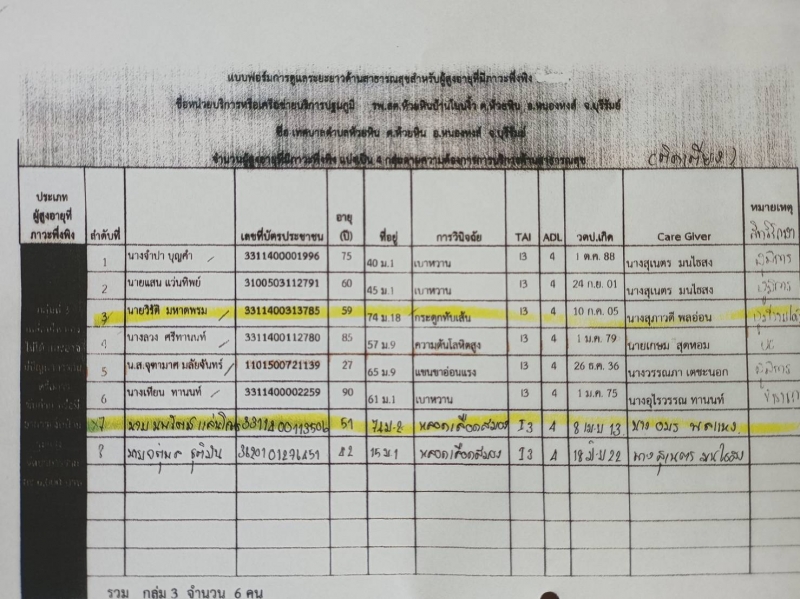 แบบฟอร์มการดูแลระยะยาวด้านสาธารณสุขสำหรับผู้สูงอายุที่มีภาวะพึ่งพิง
ชื่อหน่วยบริการหรือเครือข่ายบริการปฐมภูมิ รพ.สต.ห้วยหินบ้านโนนงิ้ว ต.ห้วยหิน อ.หนองหงส์ จ.บุรีรัมย์
ชื่อ เทศบาลตำบลห้วยหิน ต.ห้วยหิน อ.หนองหงส์ จ.บุรีรัมย์
จำนวนผู้สูงอายุที่มีภาวะพึ่งพิง แบ่งเป็น 4 กลุ่มตามความต้องการการบริการด้านสาธารณสุข (ติดเตียง)
ประเภทผู้สูงอายุที่ภาวะพึ่งพิง ลำดับที่ เลขที่บัตรประชาชน อายุ (ปี) ที่อยู่ การวินิจฉัย TAI ADL วดป.เกิด Care Giver หมายเหตุ
1 นางจำปา บุญคำ 3311400001996 75 40 ม.1 เบาหวาน I3 4 1 ต.ค. 88 นางสุเนตร มนไธสง ผู้พิการ
2 นายแสน แว่นทิพย์ 3100503112791 60 45 ม.1 เบาหวาน I3 4 24 ก.ย. 01 นางสุเนตร มนไธสง ผู้พิการ
3 นายวิรัติ มหาดพรม 3311400313785 59 74 ม.18 กระดูกทับเส้น I3 4 10 ก.ค. 05 นางสุภาวดี พลอ่อน
4 นางลวง ศรีทานนท์ 3311400112780 85 57 ม.9 ความดันโลหิตสูง I3 4 1 ม.ค. 79 นายเกษม สุดหอม
5 น.ส.จุฑามาศ มลัยจันทร์ 1101500721139 27 65 ม.9 แขนขาอ่อนแรง I3 4 26 ธ.ค. 36 นางวรรณภา เดชะนอก ผู้พิการ
6 นางเทียน ทานนท์ 3311400002259 90 61 ม.1 เบาหวาน I3 4 1 ม.ค. 75 นางอุไรวรรณ ทานนท์
7 3311400113506 51 74 ม.2 หลอดเลือดสมอง I3 4 8 เม.ย 13 นาง อมร
8 42 15 ม.1 หลอดเลือดสมอง I3 4 นาง สุเนตร มนไธสง
รวม กลุ่ม 3 จำนวน 6 คน